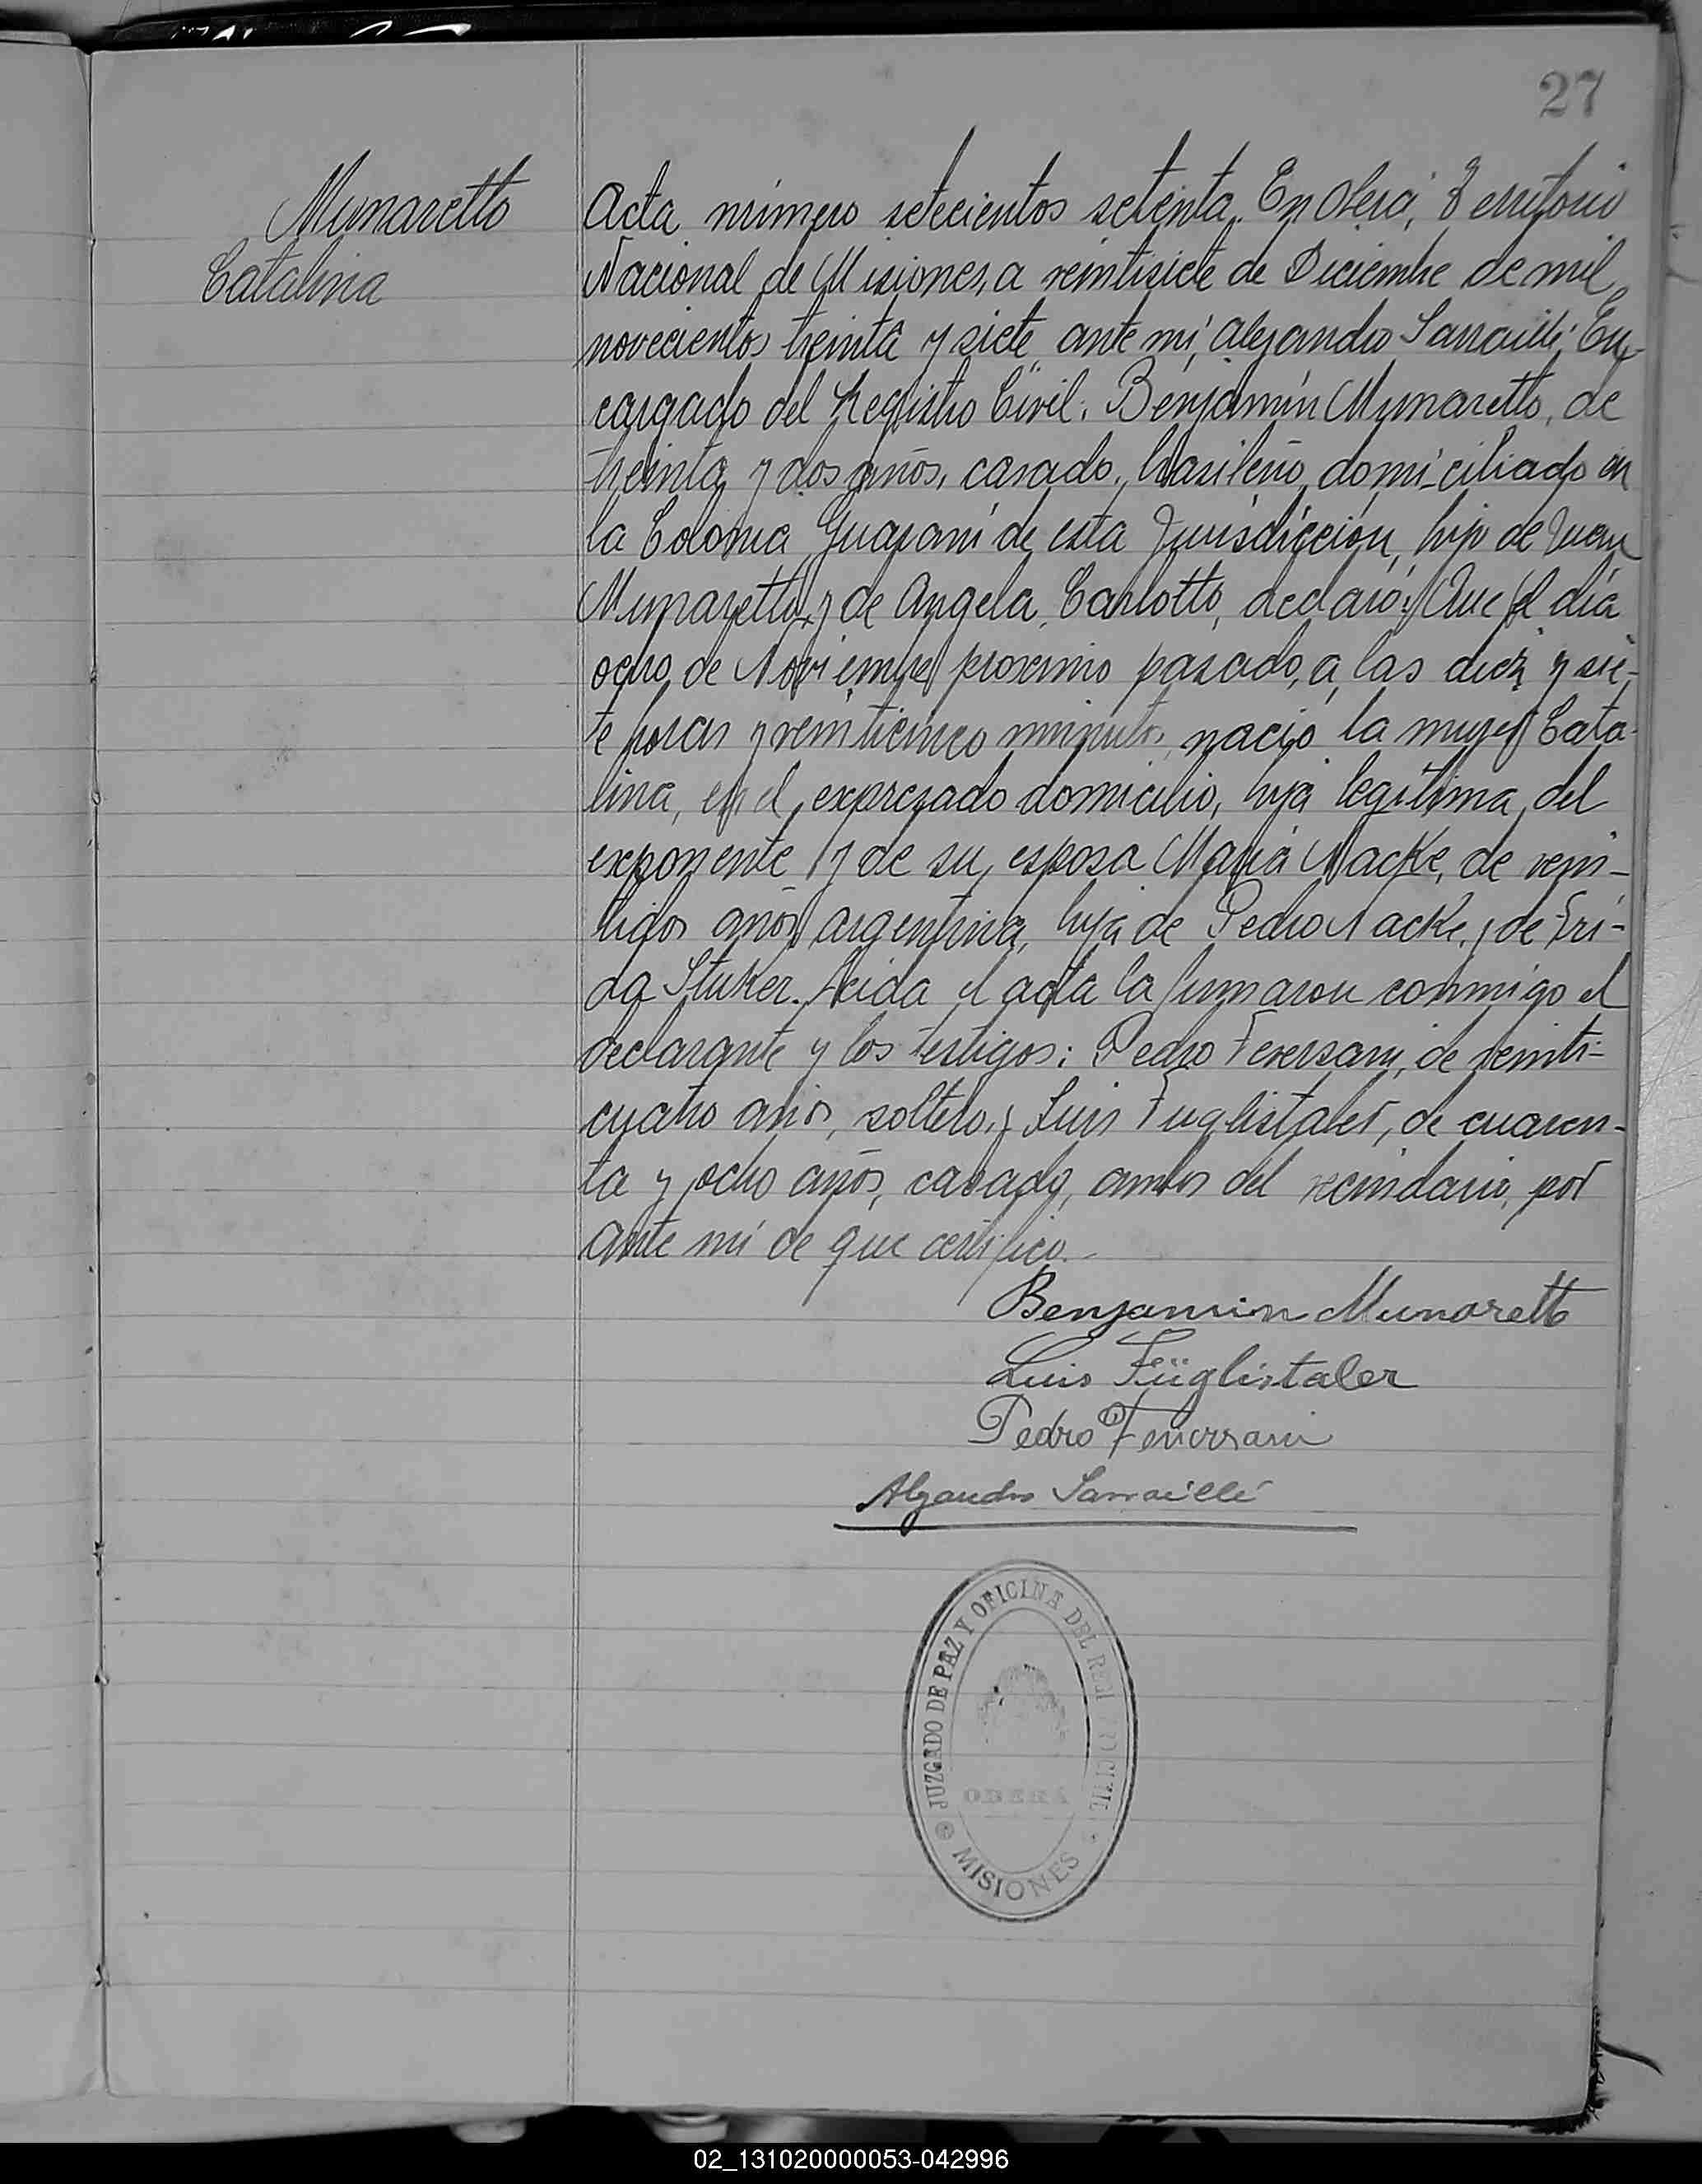 27
Munaretto
Catalina
Acta número setecientos setenta. En Oberá, Territorio
Nacional de Misiones, a veintisiete de Diciembre de mil
novecientos treinta y siete, ante mí, Alejandro Sarraillé, En-
cargado del Registro Civil: Benjamín Munaretto, de
treinta y dos años, casado, brasileño, domiciliado en
la Colonia Guaraní de esta Jurisdicción, hijo de Juan
Munaretto y de Angela Carlotto, declaró: Que el día
ocho de Noviembre próximo pasado, a las diez y sie-
te horas y veinticinco minutos, nació la mujer Cata-
lina, en el expresado domicilio, hija legítima del
exponente y de su esposa María Nacke, de vein-
tidos años, argentina, hija de Pedro Nacke y de Fri-
da Stuker. Leída el acta la firmaron conmigo el
declarante y los testigos: Pedro Feversani, de veinti-
cuatro años, soltero, y Luis Fuglistaler, de cuaren-
ta y ocho años, casado, ambos del vecindario, por
ante mí de que certifico.-
Benjamin Munaretto
Luis Füglistaler
Pedro
Alejandro Sarraillé
JUZGADO DE PAZ Y OFICINA DEL REGISTRO CIVIL
OBERÁ
MISIONES
02_131020000053-042996